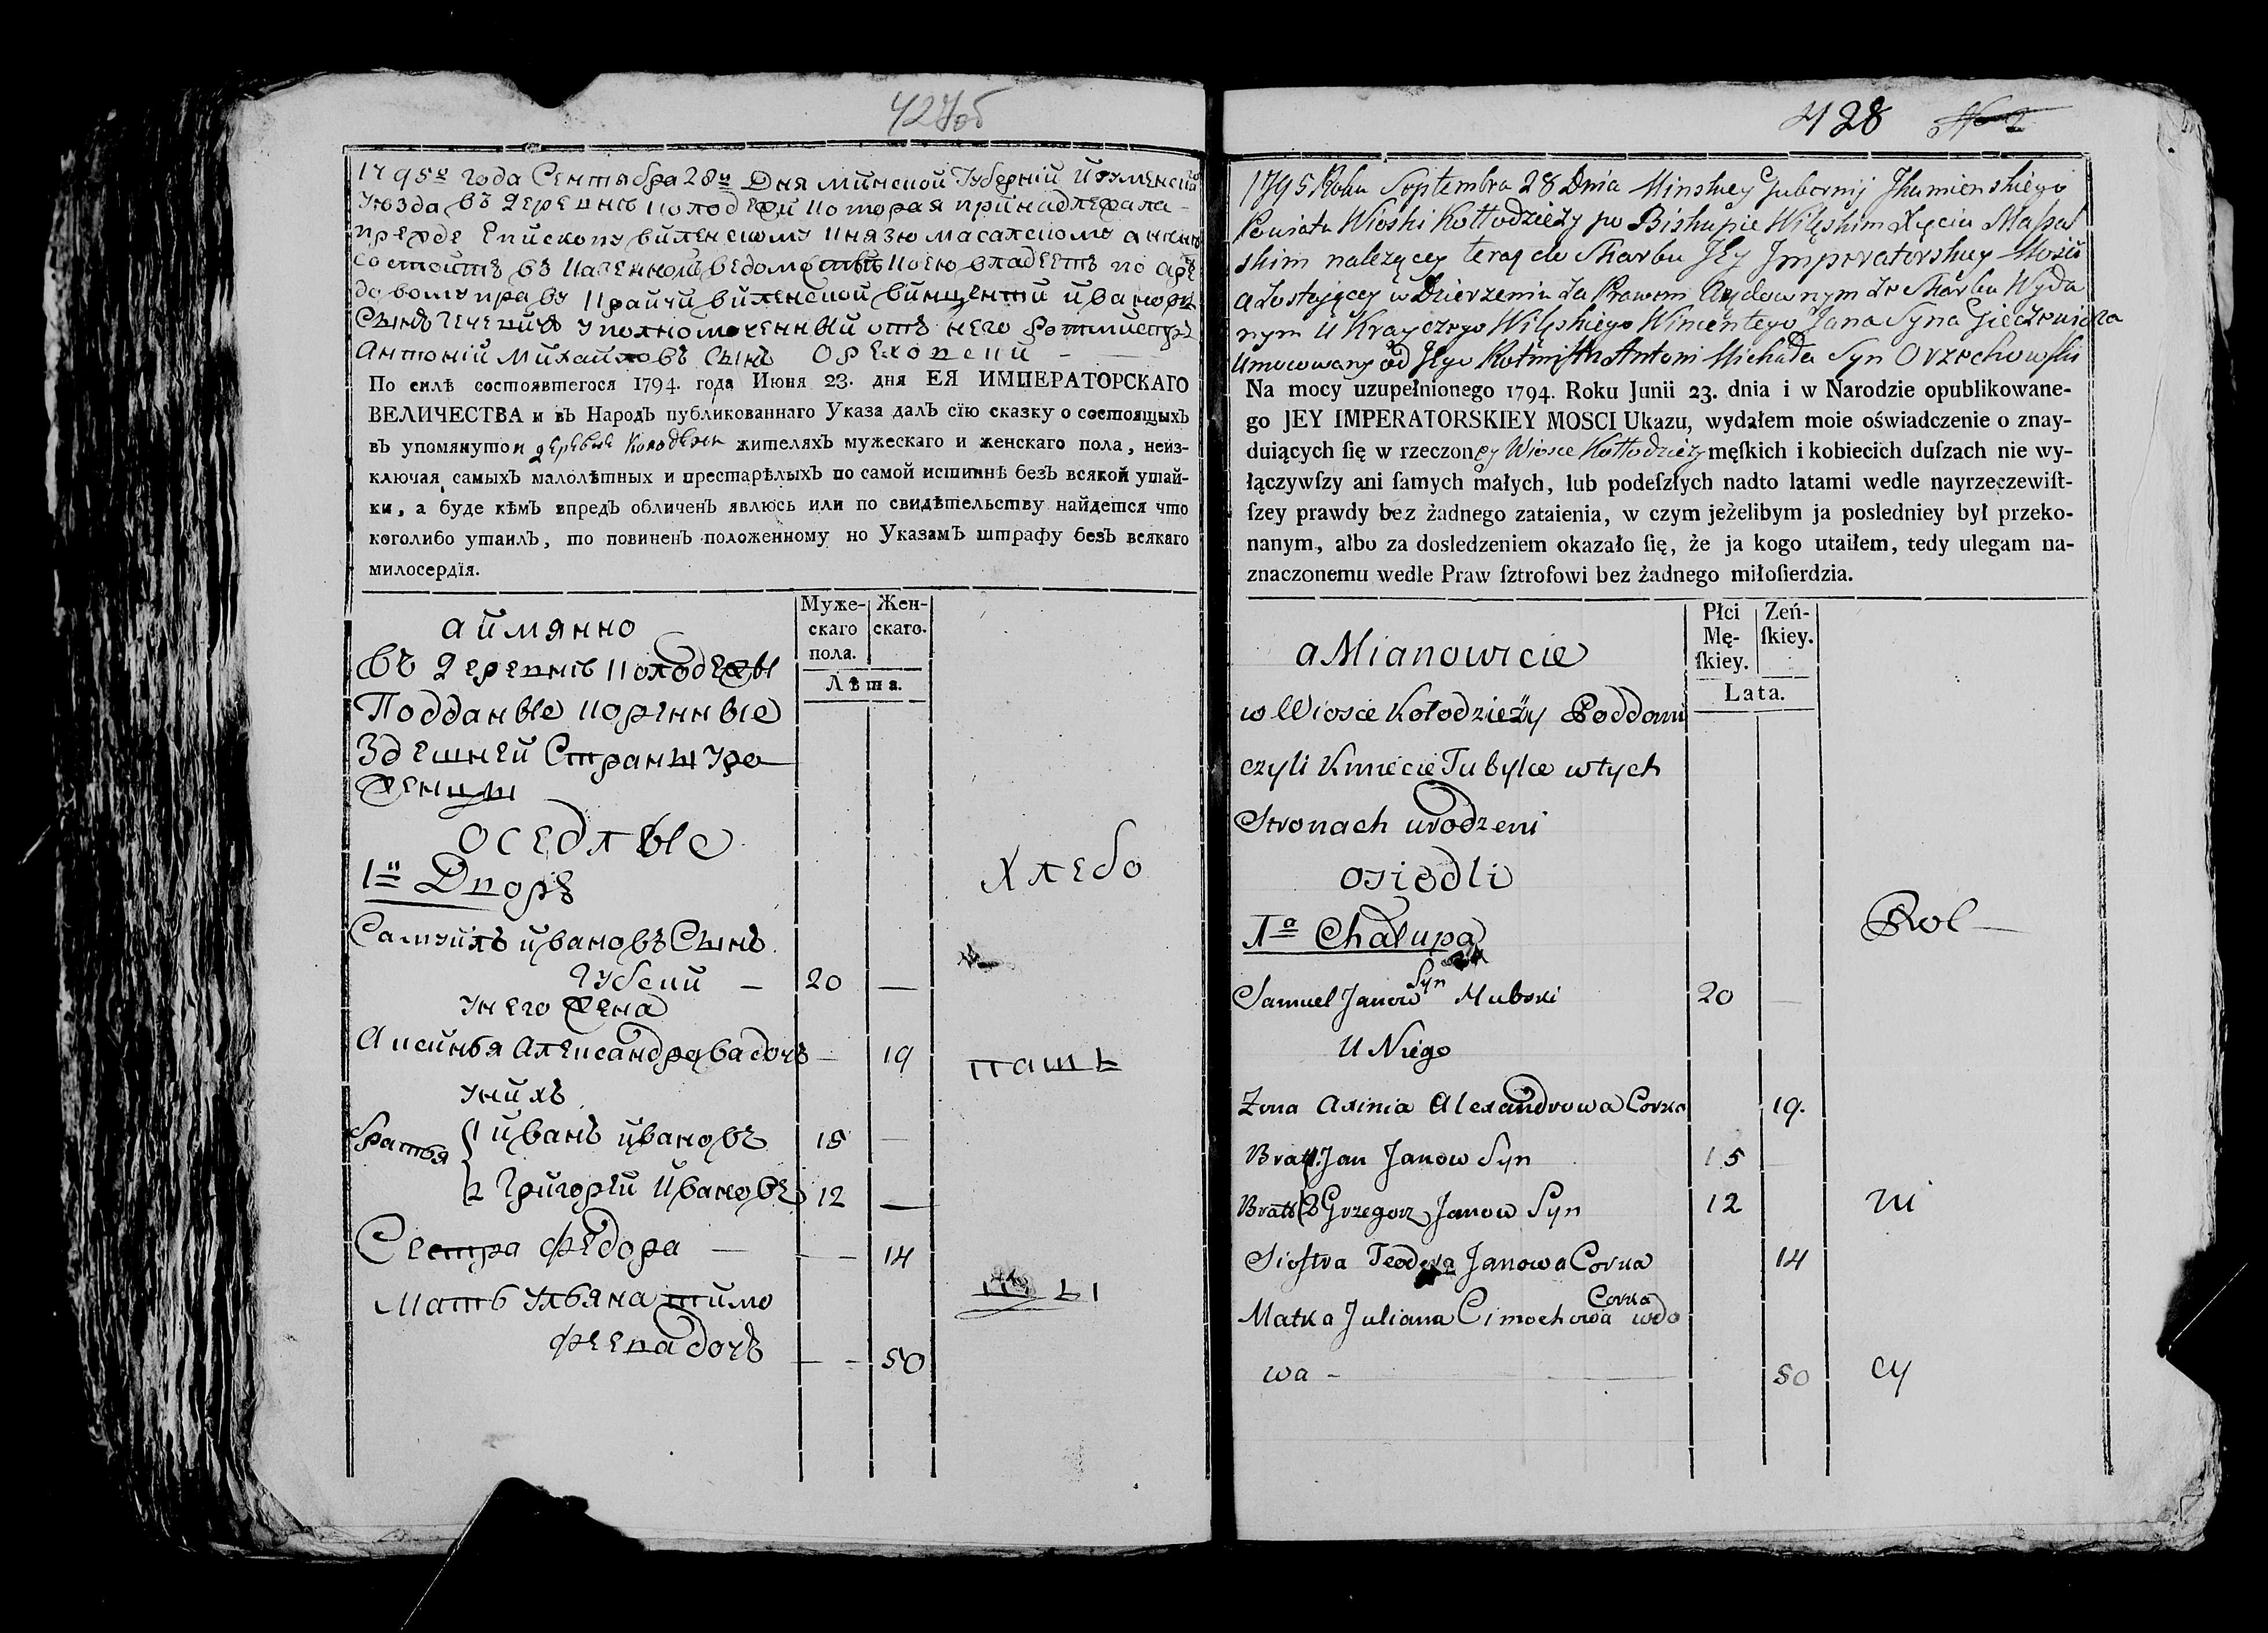 427об
1795го года Сентября 28го Дня минской Губерніи Игуменскаго
Уѣзда въ деревнѣ колодежи которая принадлежала
прежде Епископу виленскому князю масалскому а ныне
состоитъ въ казенном ведомстве коею владеетъ по арен
довому праву крайчи виленской винцентий ивановъ
Сынъ Гечевичъ уполномоченный отъ него Ротмистръ
Антоній Михайловъ Сынъ Ореховский
По силѣ состоявшегося 1794. года Июня 23. дня ЕЯ ИМПЕРАТОРСКАГО
ВЕЛИЧЕСТВА и въ Народъ публикованнаго Указа далъ сїю сказку о состоящыхъ
въ упомянутои деревне колодежи жителяхъ мужескаго и женскаго пола, неиз-
ключая самыхъ малолѣтных и престарѣлыхъ по самой истиннѣ безъ всякой утай-
ки, а буде кѣмъ впредъ обличенъ явлюсь или по свидѣтельству найдется что
коголибо утаилъ, то повиненъ положенному по Указамъ штрафу безъ всякаго
милосердїя.
Муже-
скаго
пола.
Жен-
скаго.
Лѣта.
а имянно
въ деревнѣ колодежы
Подданые коренные
Здешней Страны уро
женцы
оседлые
1й Дворъ
Хлебо
Самуилъ ивановъ Сынъ
Губский — 20 —
у него жена
Аксинья Александрова дочь — 19
паш
у нихъ
братья 1 иванъ ивановъ 15 —
2 Григорей Ивановъ 12 —
Сестра федора — — 14
цы
Мать Ульяна тимо
феева дочь — — 50
428 No 2
1795 Roku Septembra 28 Dnia Minskiey Gubernij Jhumienskiego
Powiatu Wioski Kołłodzieży po Biskupie Wilęskim Xięciu Massal
skim należącey teraz do Skarbu Jey Jmperatorskiey Mości
a Zostającey w Dzierżeniu Za Prawem Arędownym Ze Skarbu Wyda
nym U Krayczego Wilęskiego Wincentego Jana Syna Gieczewicza
Umocowany od Jego Rotmistrz Antoni Michała Syn Orzechowski
Na mocy uzupełnionego 1794. Roku Junii 23. dnia i w Narodzie opublikowane-
go JEY IMPERATORSKIEY MOSCI Ukazu, wydałem moie oświadczenie o znay-
duiących ſię w rzeczoney Wiosce Kołłodzieży męſkich i kobiecich duſzach nie wy-
łączywſzy ani ſamych małych, lub podeſzłych nadto latami wedle nayrzeczewiſt-
ſzey prawdy bez żadnego zataienia, w czym jeżelibym ja posledniey był przeko-
nanym, albo za dosledzeniem okazało ſię, że ja kogo utaiłem, tedy ulegam na-
znaczonemu wedle Praw ſztrofowi bez żadnego miłoſierdzia.
Płci
Mę-
ſkiey.
Zeń-
ſkiey.
Lata.
a Mianowicie
w Wiosce Kołodzieży Poddani
czyli Kmiecie Tubylce w tych
Stronach urodzeni
osiedli
1a Chałupa
Rol —
Samuel Janow Syn Hubski 20 —
U Niego
Zona Axinia Alexandrowa Corka 19.
Brat 1 Jan Janow Syn 15
Bratt 2 Grzegorz Janow Syn 12
ni
Siostra Teodora Janowa Corka 14
Matka Juliana Cimochowa Corka wdo
wa - 50
cy